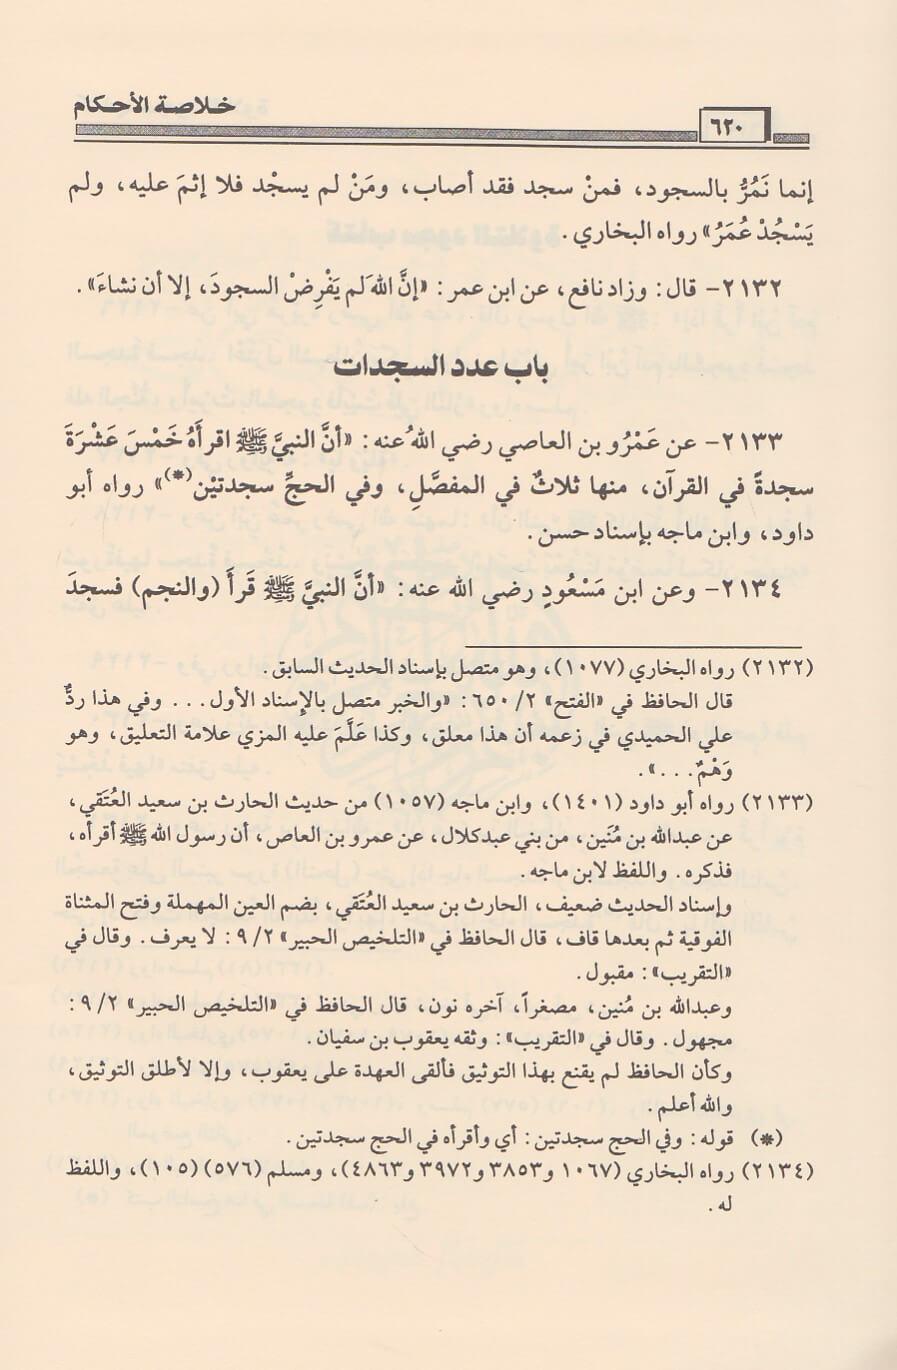 خلاصة الأحكام
٦٢٠
إنما نَمُرُّ بالسجود، فمنْ سجد فقد أصاب، ومَنْ لم يسجْد فلا إثمَ عليه، ولم
يَسْجُدْ عُمَرُ» رواه البخاري.
٢١٣٢- قال: وزاد نافع، عن ابن عمر: «إنَّ الله لم يَفْرِضْ السجودَ، إلا أن نشاءَ».
باب عدد السجدات
٢١٣٣- عن عَمْرُو بن العاصي رضي اللهُ عنه: «أنَّ النبيَّ ﷺ اقرأَهُ خَمْسَ عَشْرَةَ
سجدةً في القرآن، منها ثلاثٌ في المفصَّلِ، وفي الحجِّ سجدتيْن(*)» رواه أبو
داود، وابن ماجه بإسناد حسن.
٢١٣٤- وعن ابن مَسْعُودٍ رضي الله عنه: «أنَّ النبيَّ ﷺ قَرأَ (والنجم) فسجدَ
(٢١٣٢) رواه البخاري (١٠٧٧)، وهو متصل بإسناد الحديث السابق.
قال الحافظ في «الفتح» ٢/ ٦٥٠: «والخبر متصل بالإسناد الأول... وفي هذا ردٌّ
علي الحميدي في زعمه أن هذا معلق، وكذا عَلَّمَ عليه المزي علامة التعليق، وهو
وَهْمٌ...».
(٢١٣٣) رواه أبو داود (١٤٠١)، وابن ماجه (١٠٥٧) من حديث الحارث بن سعيد العُتَقي،
عن عبدالله بن مُنَين، من بني عبدكلال، عن عمرو بن العاص، أن رسول الله ﷺ أقرأه،
فذكره. واللفظ لابن ماجه.
وإسناد الحديث ضعيف، الحارث بن سعيد العُتَقي، بضم العين المهملة وفتح المثناة
الفوقية ثم بعدها قاف، قال الحافظ في «التلخيص الحبير» ٢/ ٩: لا يعرف. وقال في
«التقريب»: مقبول.
وعبدالله بن مُنين، مصغراً، آخره نون، قال الحافظ في «التلخيص الحبير» ٢/ ٩:
مجهول. وقال في «التقريب»: وثقه يعقوب بن سفيان.
وكأن الحافظ لم يقنع بهذا التوثيق فألقى العهدة على يعقوب، وإلا لأطلق التوثيق،
والله أعلم.
(*) قوله: وفي الحج سجدتين: أي وأقرأه في الحج سجدتين.
(٢١٣٤) رواه البخاري (١٠٦٧ و٣٨٥٣ و٣٩٧٢ و٤٨٦٣)، ومسلم (٥٧٦) (١٠٥)، واللفظ
له.